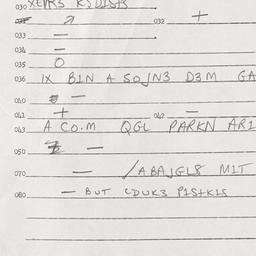 030 XEVRS KSDISTS
032 +
033 —
034 —
035 O
036 IX B1N A SOJN3 D3M GA
040 —
041 + 042 —
043 A CO.M QGL PARKN AR1
050 —
070 — /ABAJGL8 M1T
080 — BUT CDUK3 P1S+K1S